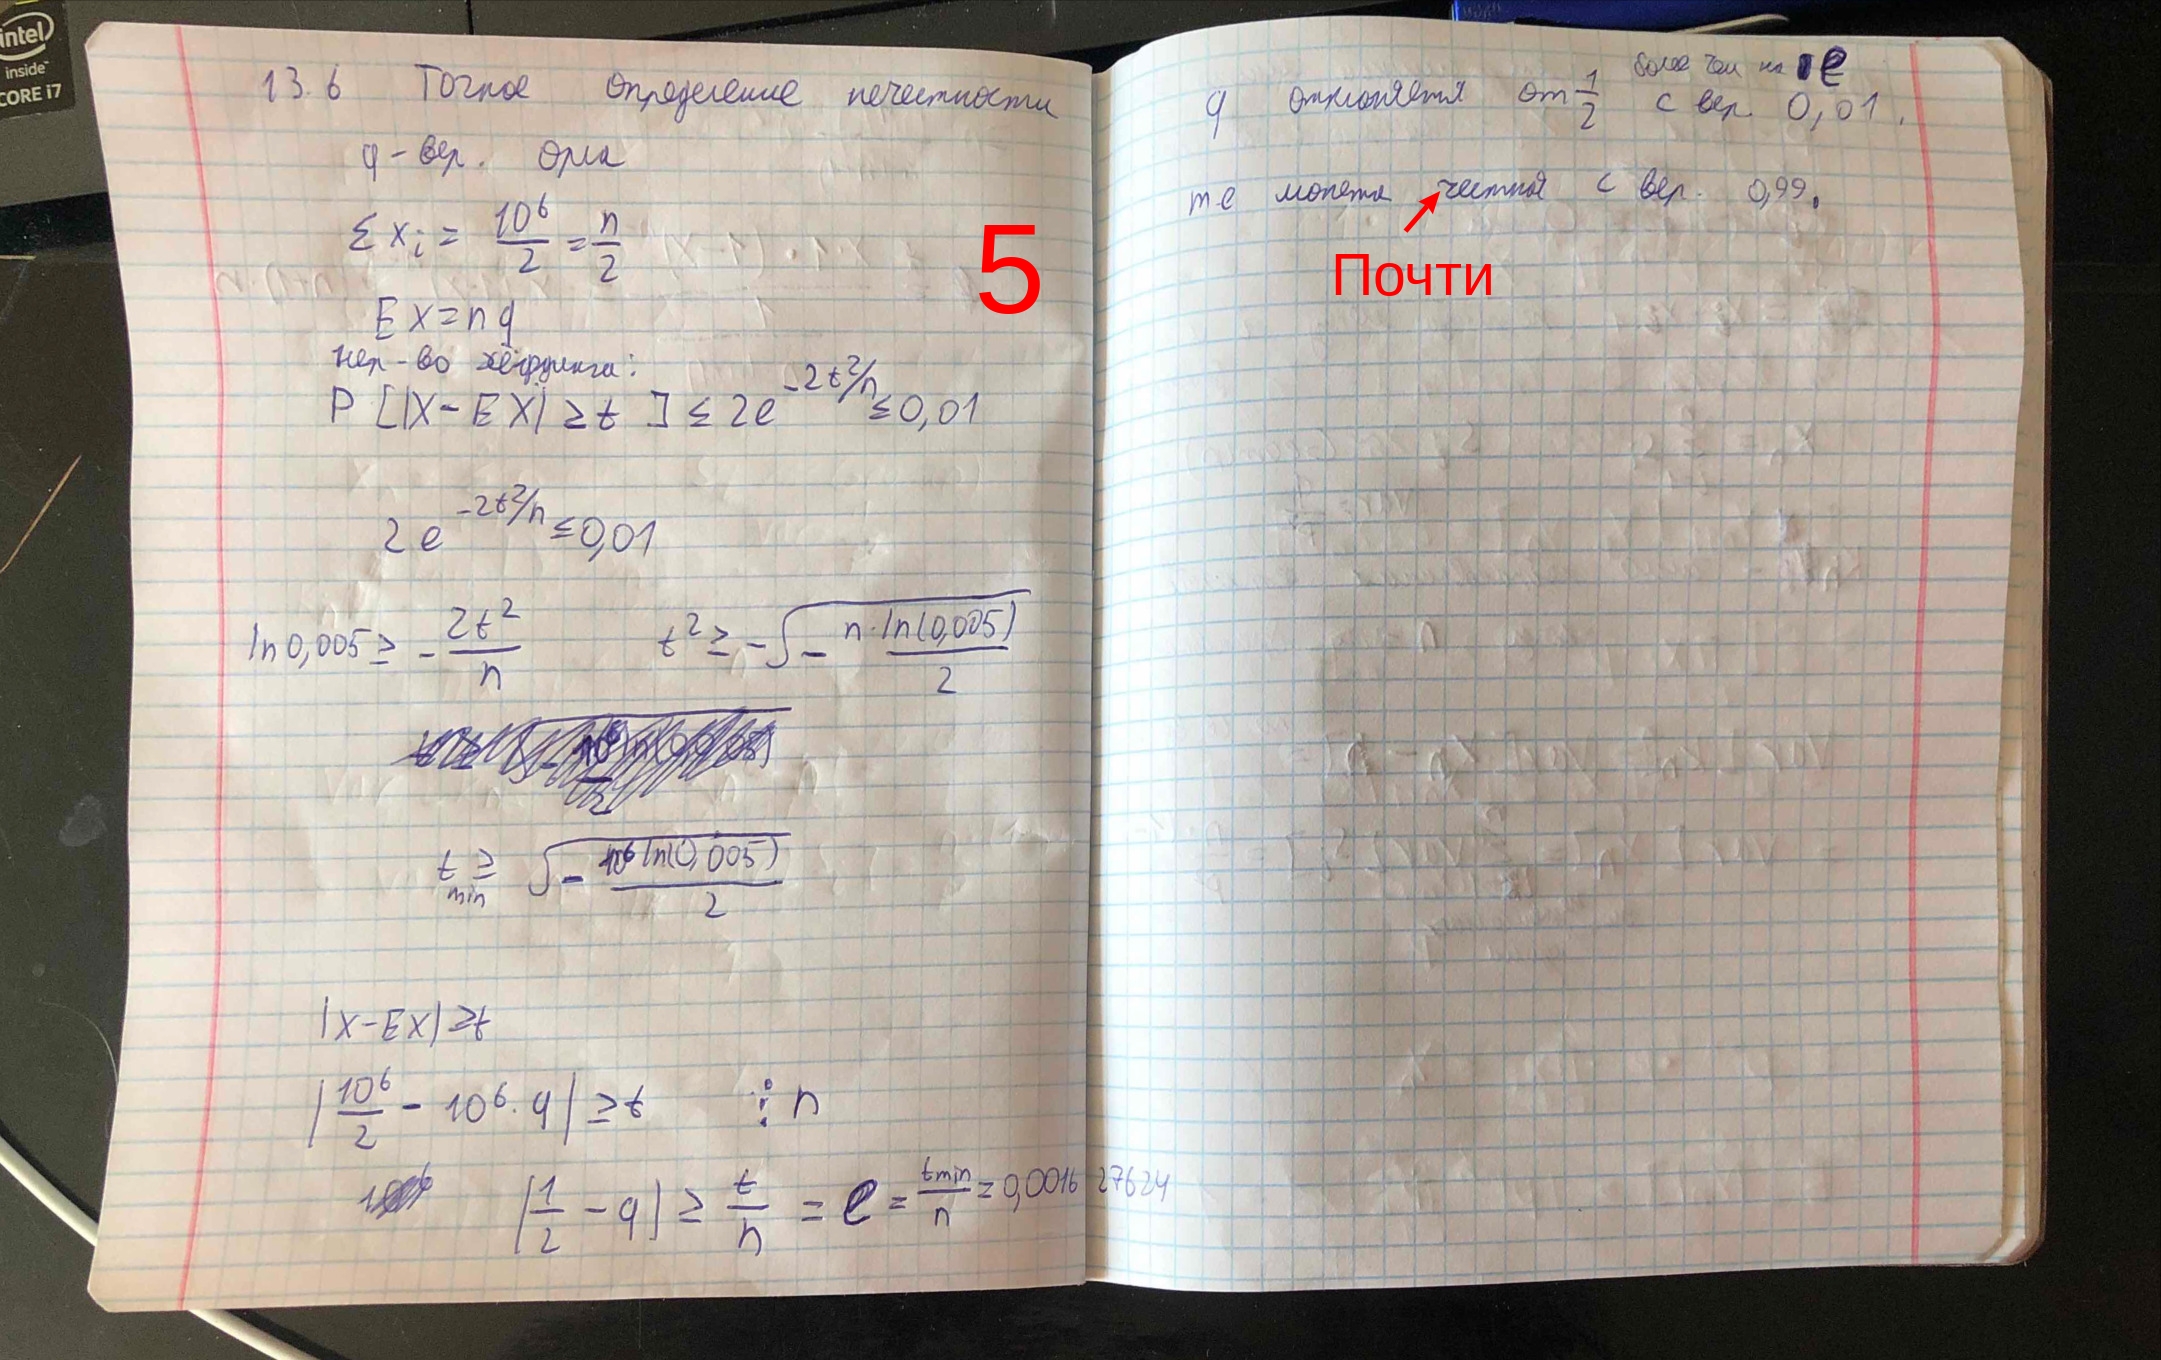 intel
inside
CORE i7
13.6 Точное определение нечестности
q - вер. орла
Σ x_i = 10^6/2 = n/2
EX = nq
нер-во хёфдинга:
P [|X - EX| ≥ t ] ≤ 2e^{-2t²/n} ≤ 0,01
2e^{-2t²/n} ≤ 0,01
ln 0,005 ≥ - 2t²/n t² ≥ -√(- n·ln(0,005)/2)
t_min ≥ √(- ln(0,005)/2)
|X - EX| ≥ t
|10^6/2 - 10^6·q| ≥ t : n
|1/2 - q| ≥ t/n = e = t_min/n = 0,001627624
5
более чем на e
q отклоняется от 1/2 с вер. 0,01.
т е монета честная с вер. 0,99.
Почти